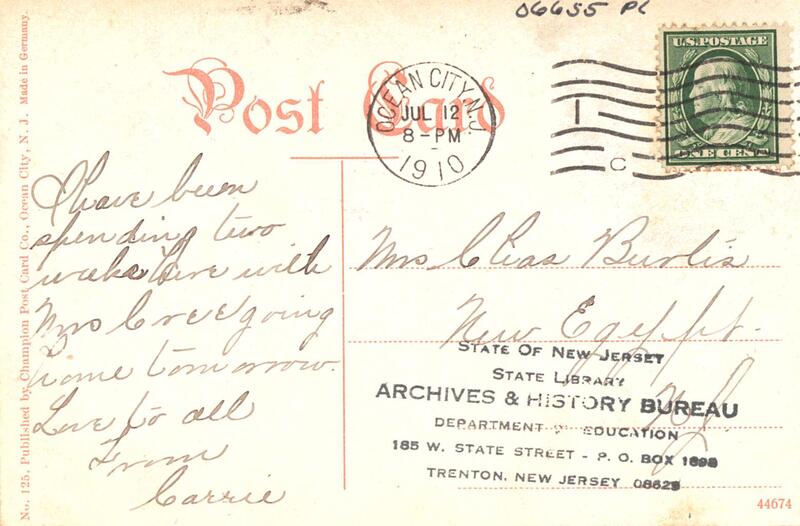 06655 PC
Post Card
OCEAN CITY, N.J.
JUL 12
8-PM
1910
1
C
U.S. POSTAGE
ONE CENT
I have been
spending two
weeks here with
Mrs Cree going
home tomorrow.
Love to all
From
Carrie
Mrs Chas Burtis
New Egypt.
NJ
STATE OF NEW JERSEY
STATE LIBRARY
ARCHIVES & HISTORY BUREAU
DEPARTMENT OF EDUCATION
185 W. STATE STREET - P. O. BOX 1898
TRENTON, NEW JERSEY 08625
No. 125. Published by Champion Post Card Co., Ocean City, N. J. Made in Germany.
44674